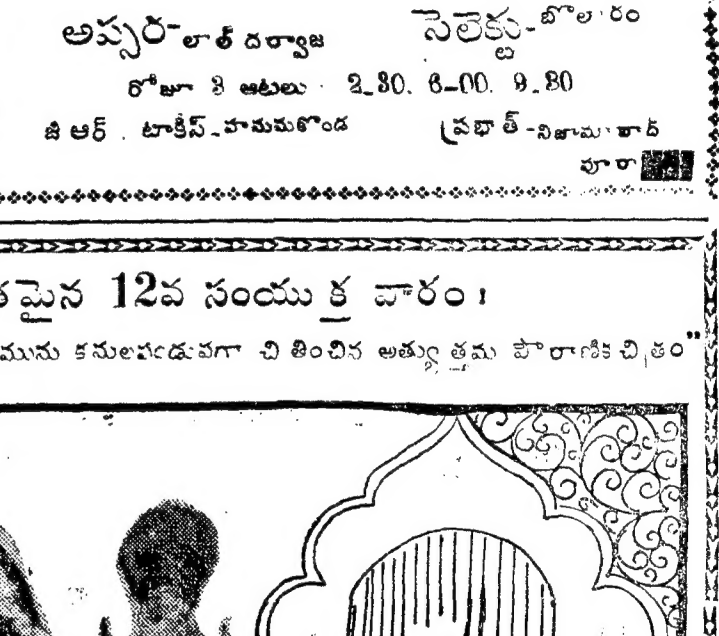 అప్సర-లాల్ దర్వాజ సెలెక్టు-బొలారం
రోజూ 3 ఆటలు 2-30. 6-00. 9-30
జి ఆర్. టాకీస్-హనుమకొండ ప్రభాత్-నిజామాబాద్
పూరా
తమైన 12వ సంయుక్త వారం!
మును కనులపండువగా చిత్రించిన అత్యుత్తమ పౌరాణిక చిత్రం"